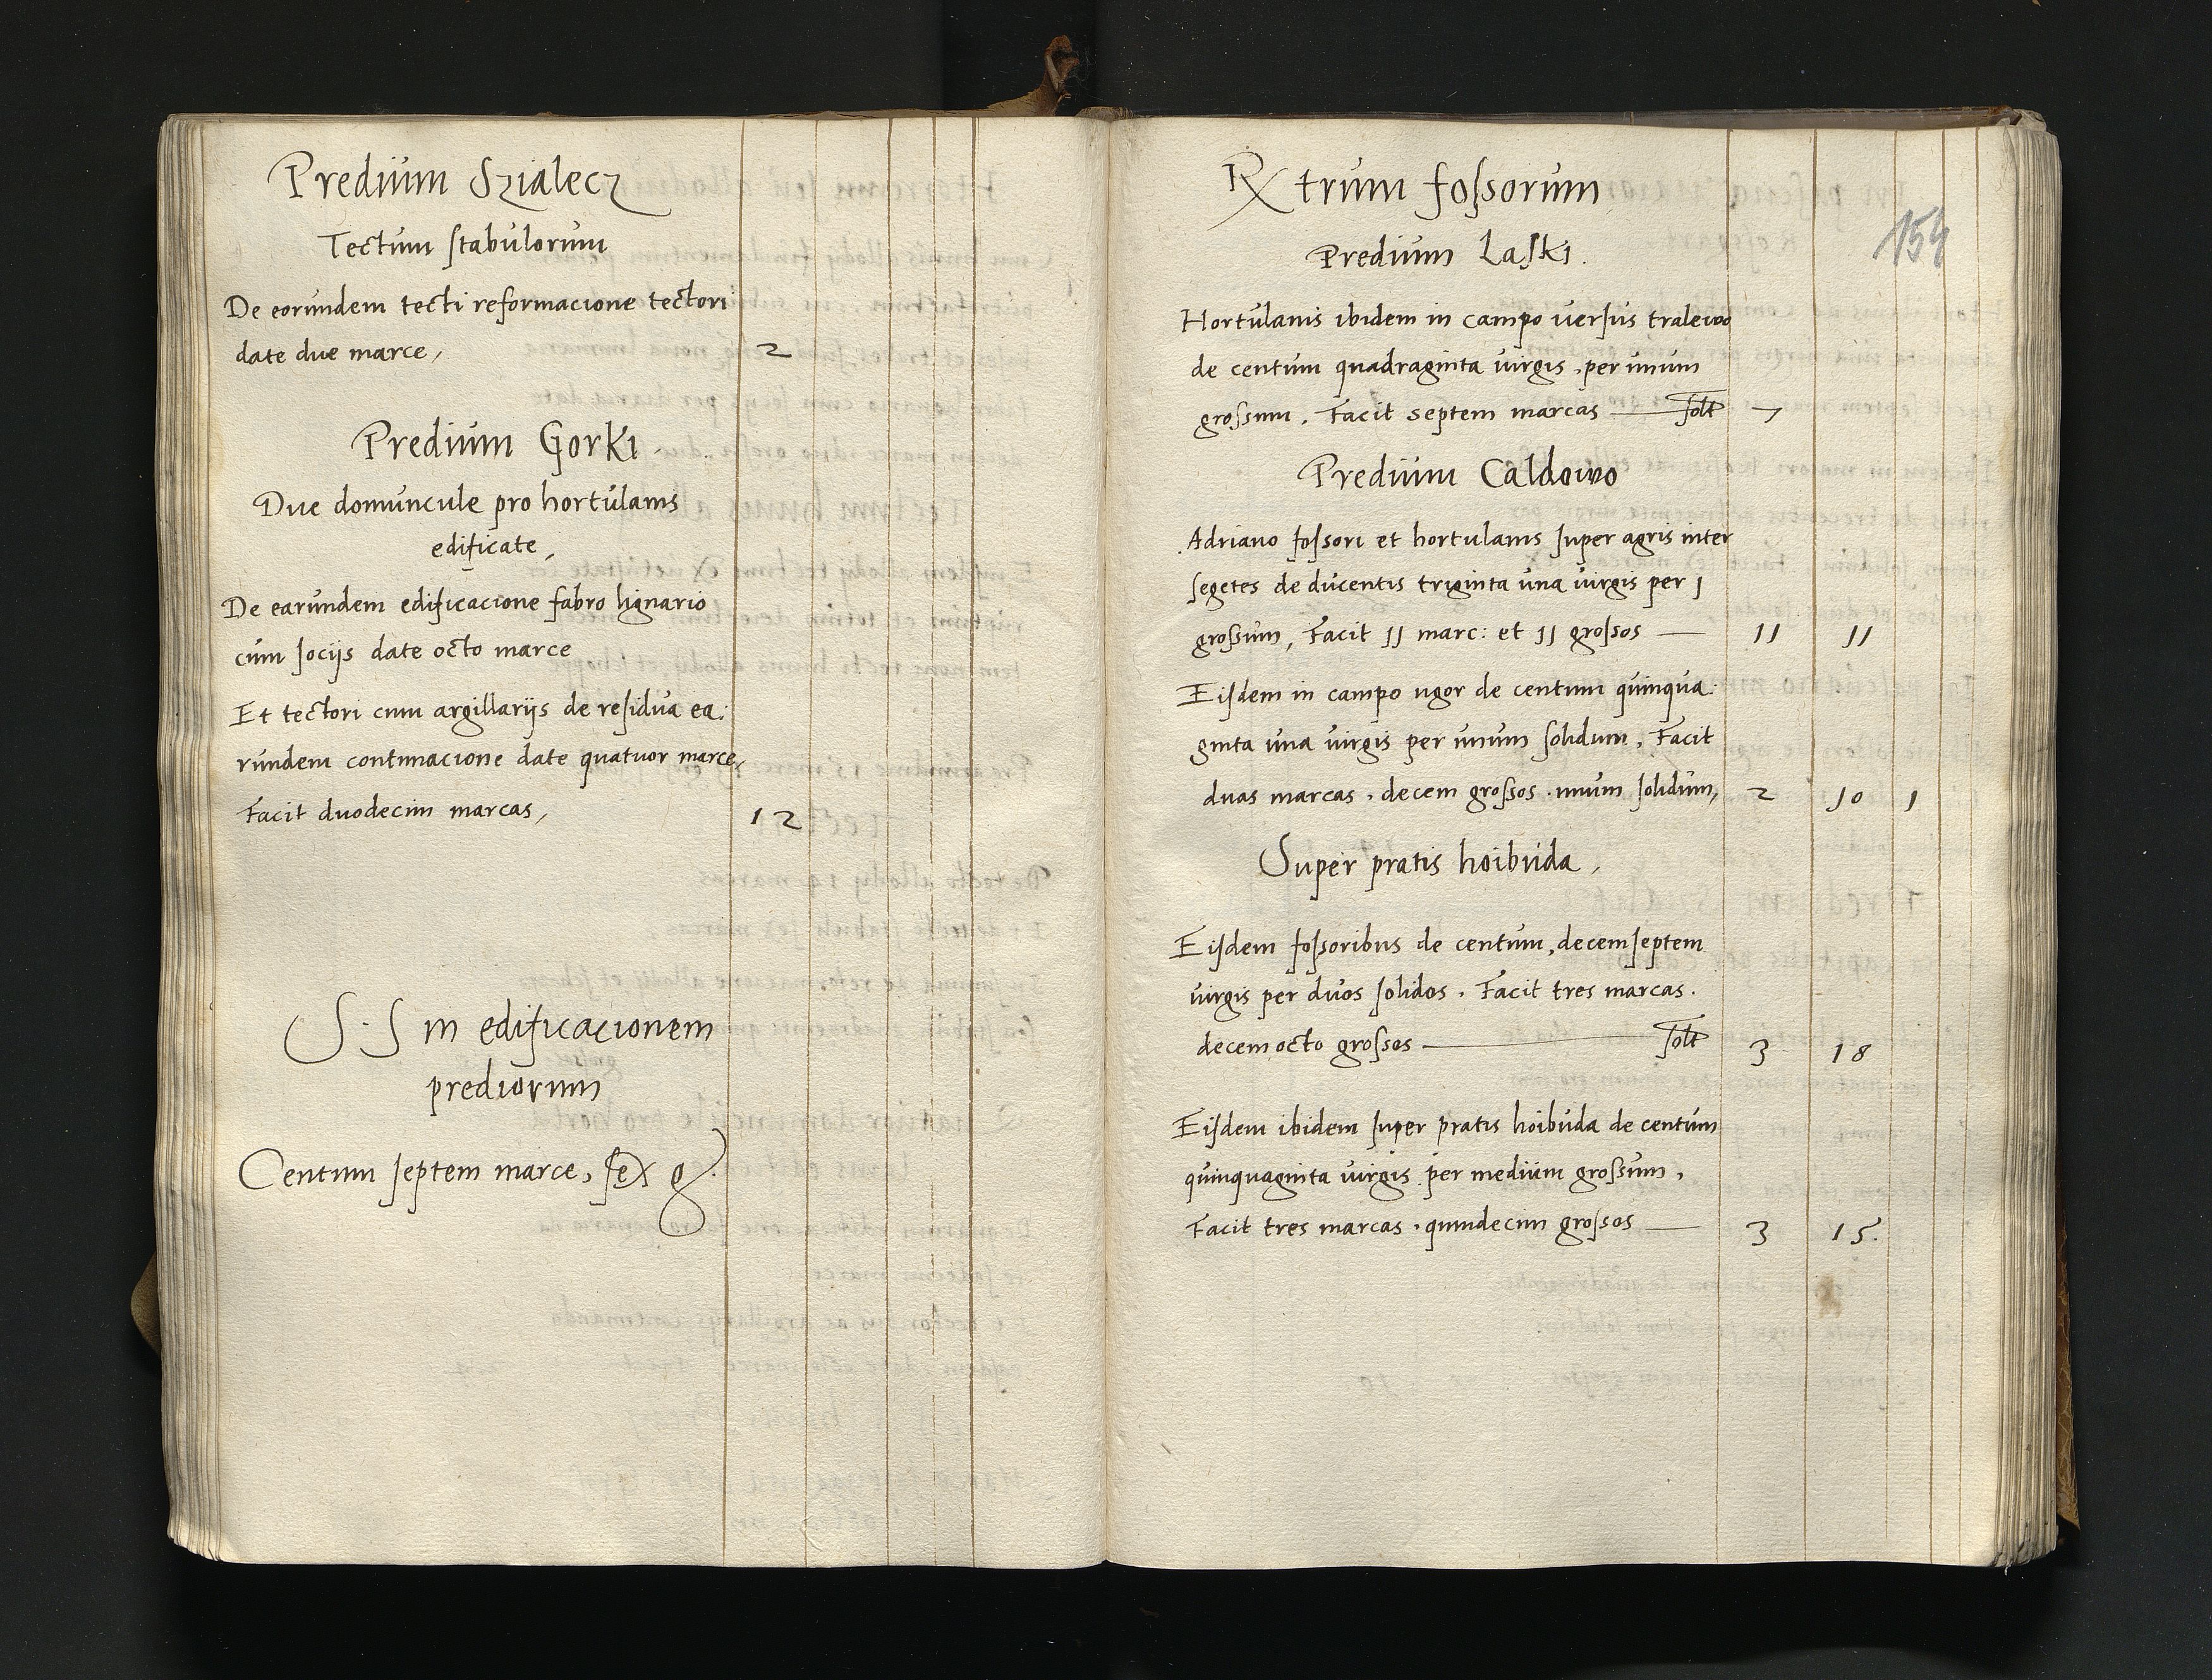 Predium Szialecz
Tectum stabulorum
De eorundem tecti reformacione tectori
date due marce, 2
Predium Gorki
Due domuncule pro hortulanis
edificate,
De earundem edificacione fabro lignario
cum socijs date octo marce
Et tectori cum argillarijs de residua ea:
rundem continuacione date quatuor marce,
Facit duodecim marcas, 12
S. S in edificacionem
prediorum
Centum septem marce, sex g
Rx trum fossorum
154
Predium Laski.
Hortulanis ibidem in campo versus tralewo
de centum quadraginta virgis, per unum
grossum. Facit septem marcas — solt 7
Predium Caldowo
Adriano fossori et hortulanis super agris inter
segetes de ducentis triginta una virgis per 1
grossum, Facit 11 marc: et 11 grossos — 11 11
Eisdem in campo ugor de centum quinqua:
ginta una virgis per unum solidum, Facit
duas marcas, decem grossos, unum solidum, 2 10 1
Super pratis hoibuda,
Eisdem fossoribus de centum, decem septem
virgis per duos solidos. Facit tres marcas.
decem octo grossos — solt 3 18
Eisdem ibidem super pratis hoibuda de centum
quinquaginta virgis per medium grossum,
Facit tres marcas, quindecim grossos — 3 15.